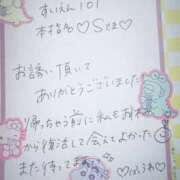 すいえん 101
本指名♡Sさま♡
お誘い頂いて
ありがとうございました
帰っちゃう前に
から復活して会えてよかった
また待ってます